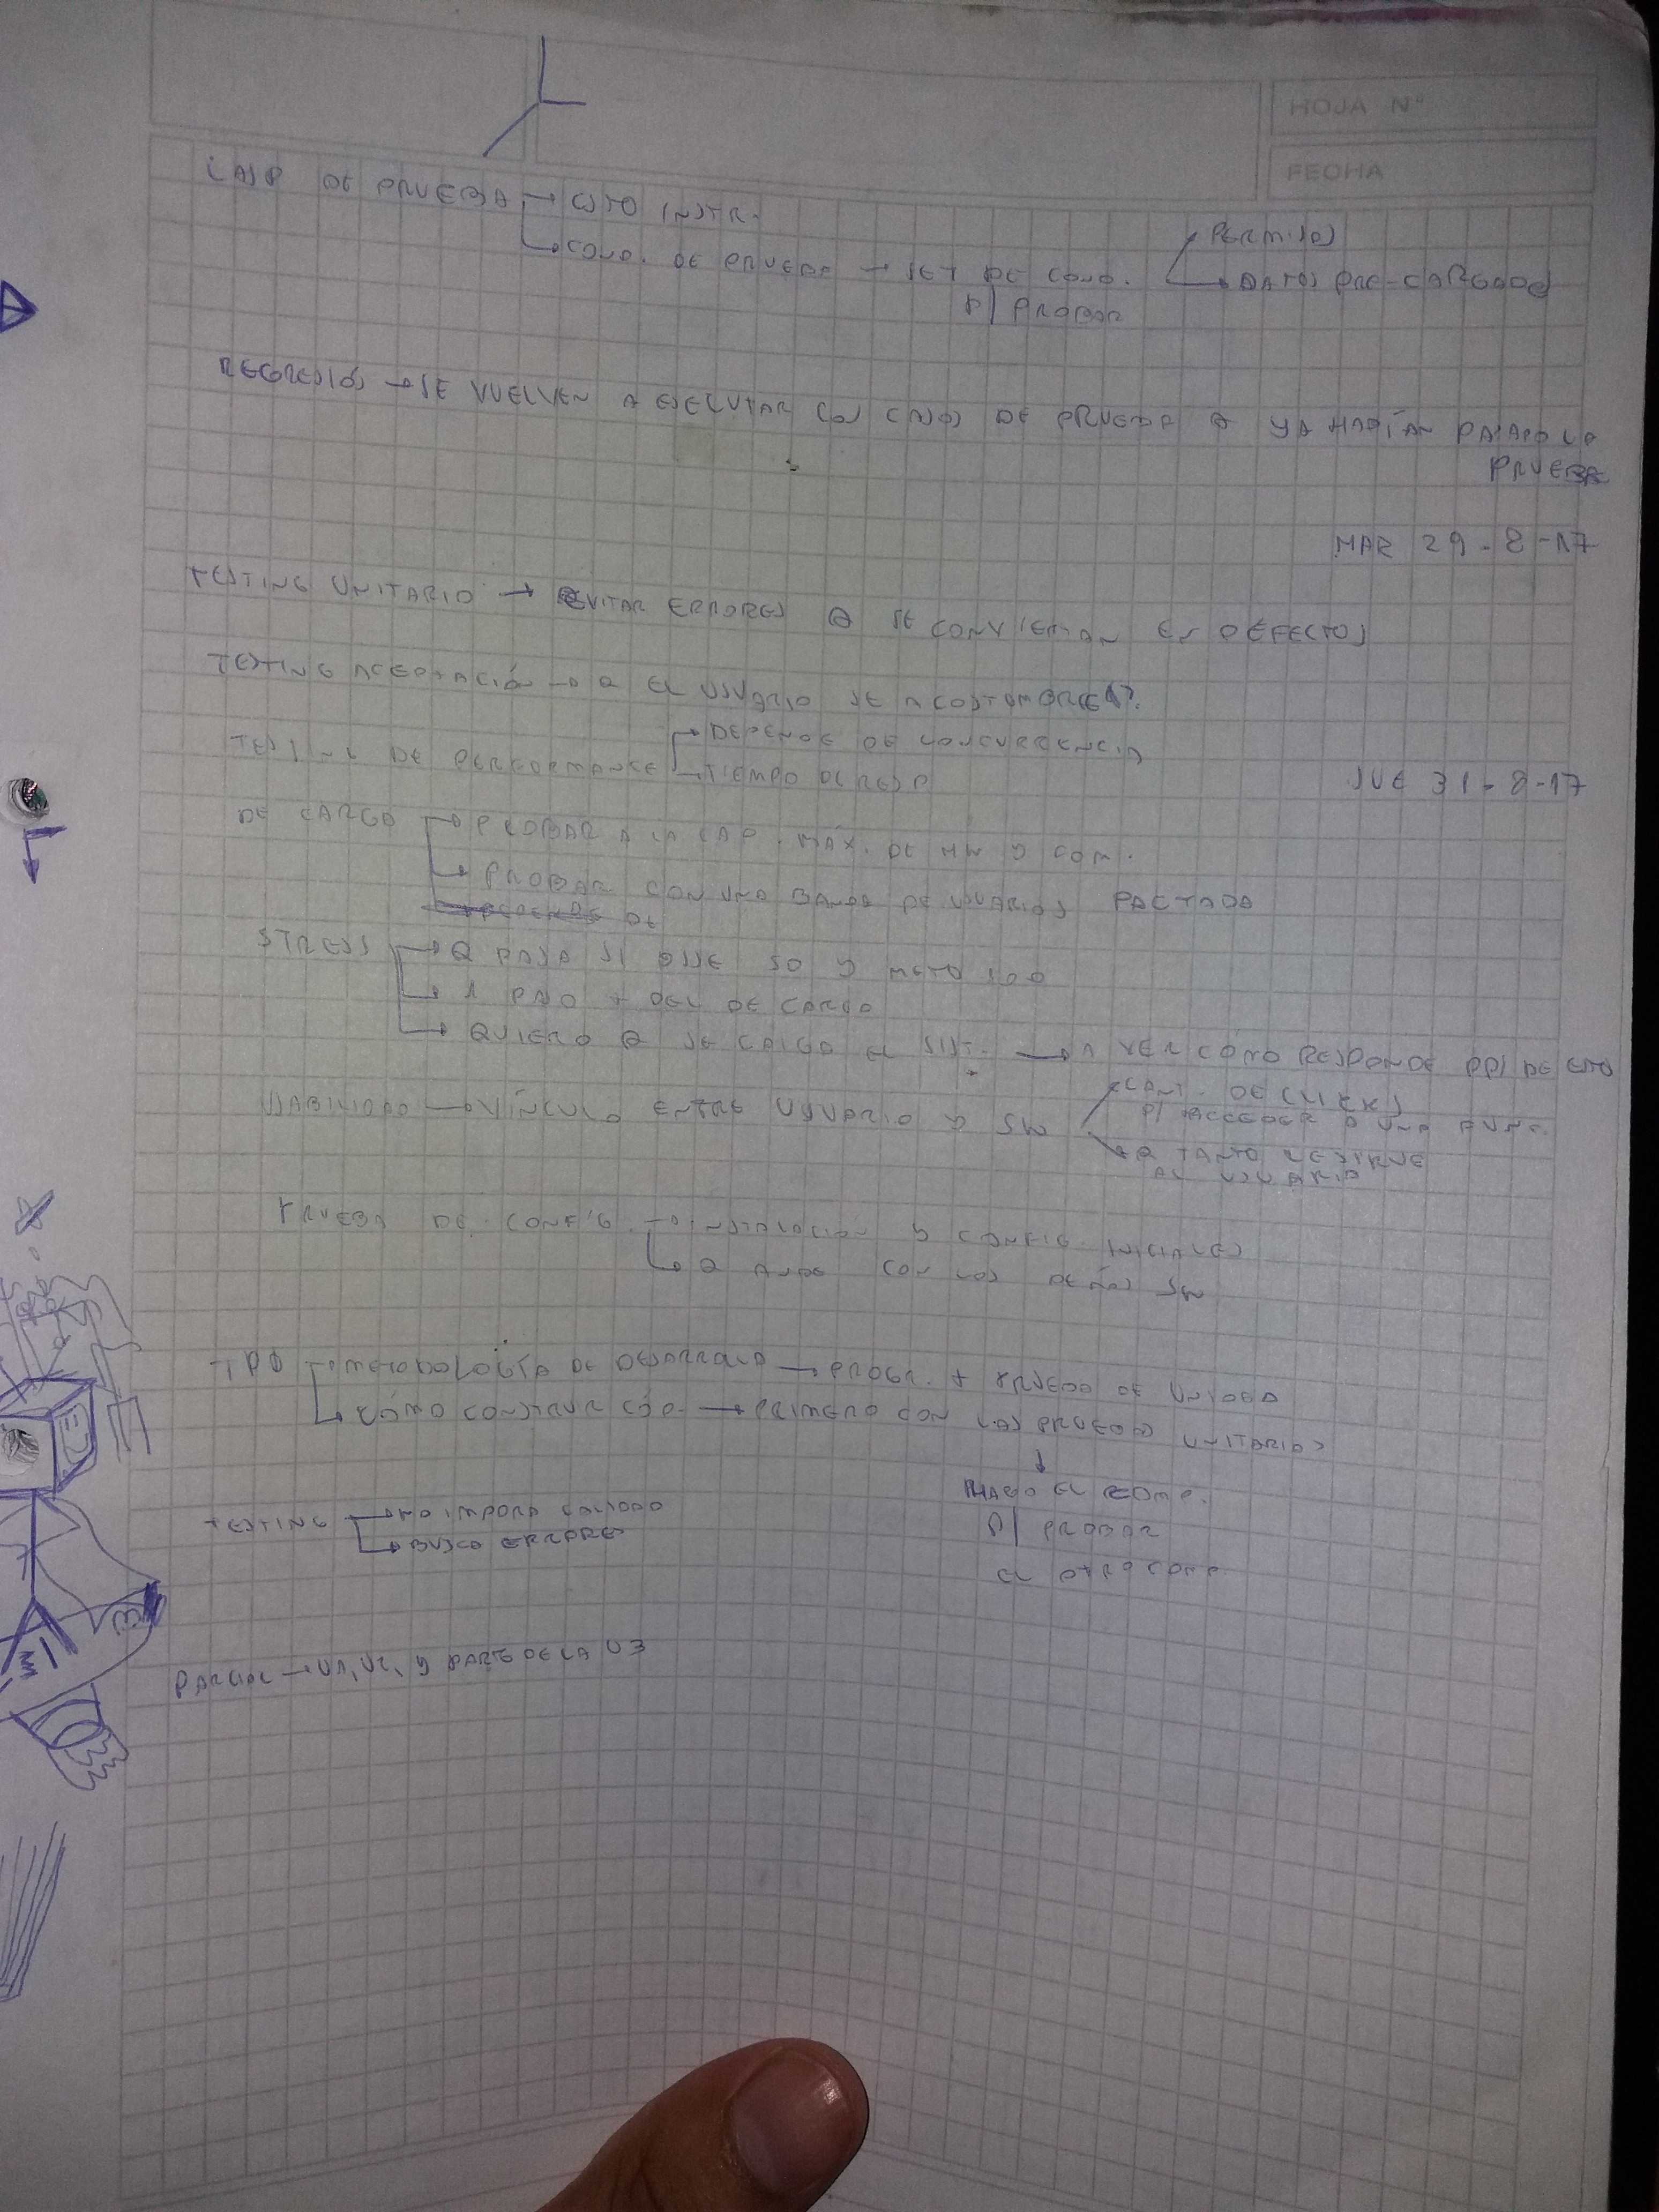 HOJA N°
FECHA
CASO DE PRUEBA → CJTO INSTR.
→ COND. DE PRUEBA → SET DE COND. → PERMISOS
P/ PROBAR → DATOS PRE-CARGADOS
REGRESIÓN → SE VUELVEN A EJECUTAR LOS CASOS DE PRUEBA Q YA HABÍAN PASADO LA
PRUEBA
MAR 29-8-17
TESTING UNITARIO → EVITAR ERRORES Q SE CONVIERTAN EN DEFECTOS
TESTING ACEPTACIÓN → Q EL USUARIO SE ACOSTUMBRE
TESTING DE PERFORMANCE → DEPENDE DE CONCURRENCIA
→ TIEMPO DE RESP
JUE 31-8-17
DE CARGA → PROBAR A LA CAP. MÁX. DE HW Y COM.
→ PROBAR CON UNA BANDA DE USUARIOS PACTADA
DEPENDE DE
STRESS → Q PASA SI DIJE 50 Y METO 100
→ 1 PASO + DEL DE CARGA
→ QUIERO Q SE CAIGA EL SIST. → A VER COMO RESPONDE DPS DE ESTO
USABILIDAD → VÍNCULO ENTRE USUARIO Y SW → CANT. DE CLICKS
P/ ACCEDER A UNA FUNC.
→ Q TANTO LE SIRVE
AL USUARIO
PRUEBA DE CONFIG. → INSTALACIÓN Y CONFIG. INICIALES
→ Q ANDE CON LOS DEMÁS SW
TDD → METODOLOGÍA DE DESARROLLO → PROGR. + PRUEBA DE UNIDAD
→ CÓMO CONSTRUIR CÓD. → PRIMERO CON LAS PRUEBAS UNITARIAS
↓
HAGO EL COMP.
P/ PROBAR
EL OTRO COMP.
TESTING → NO IMPORTA CALIDAD
→ BUSCO ERRORES
PARCIAL → U1, U2, Y PARTE DE LA U3